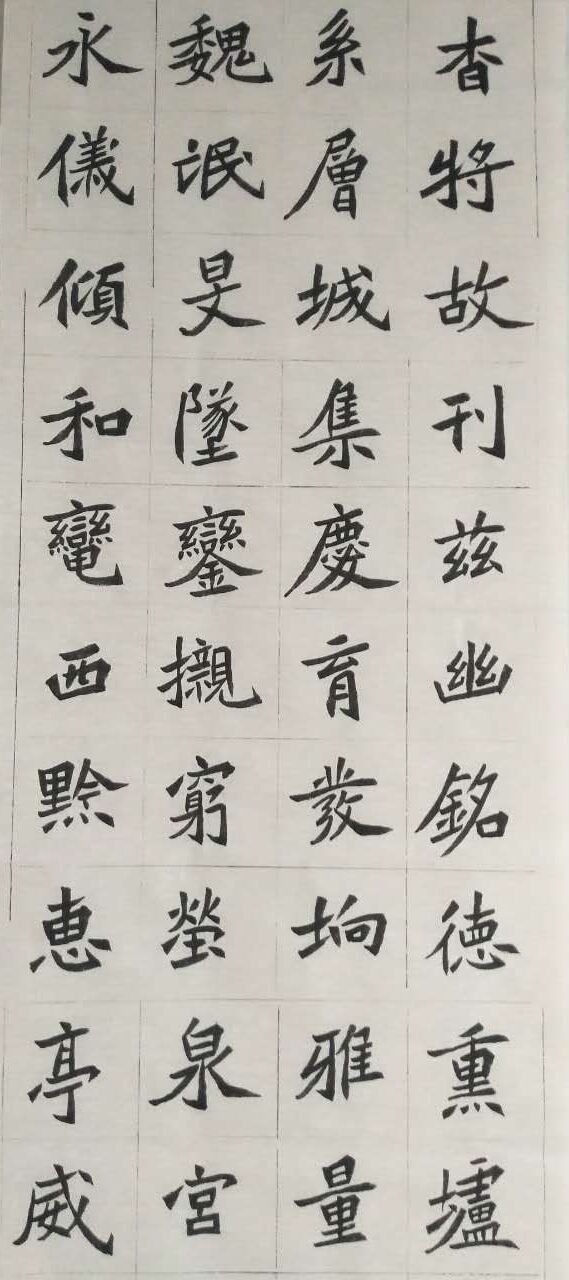 杳將故刊茲幽銘德熏壚
系層城集慶育發坰雅量
魏泯旻墜鑾窮塋泉宮
永儀傾和西黔恵亭威